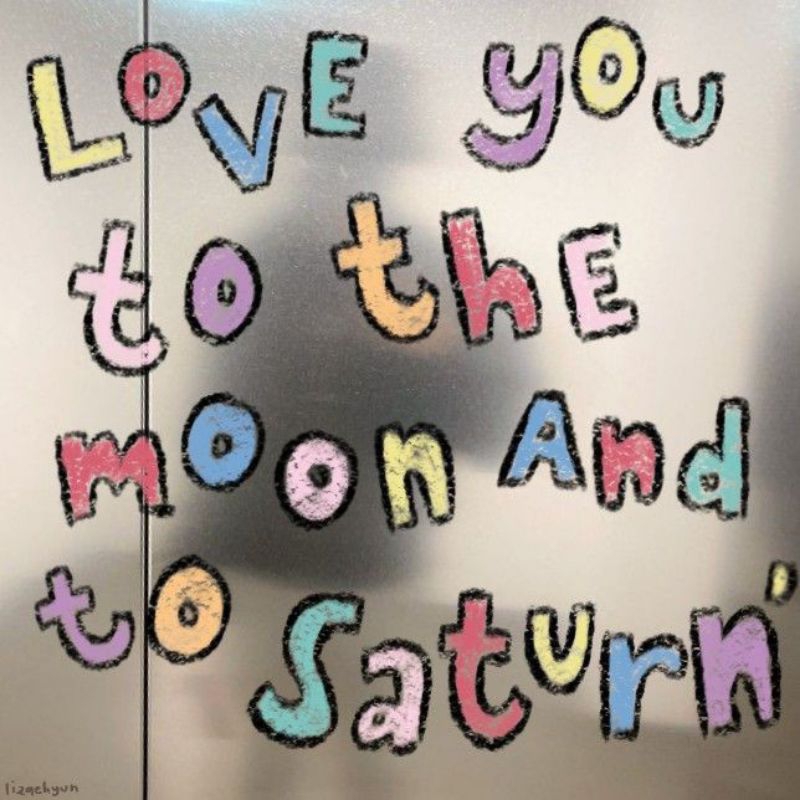 LOVE yOU
to thE
mOOn And
to Saturn'
lizaehyun